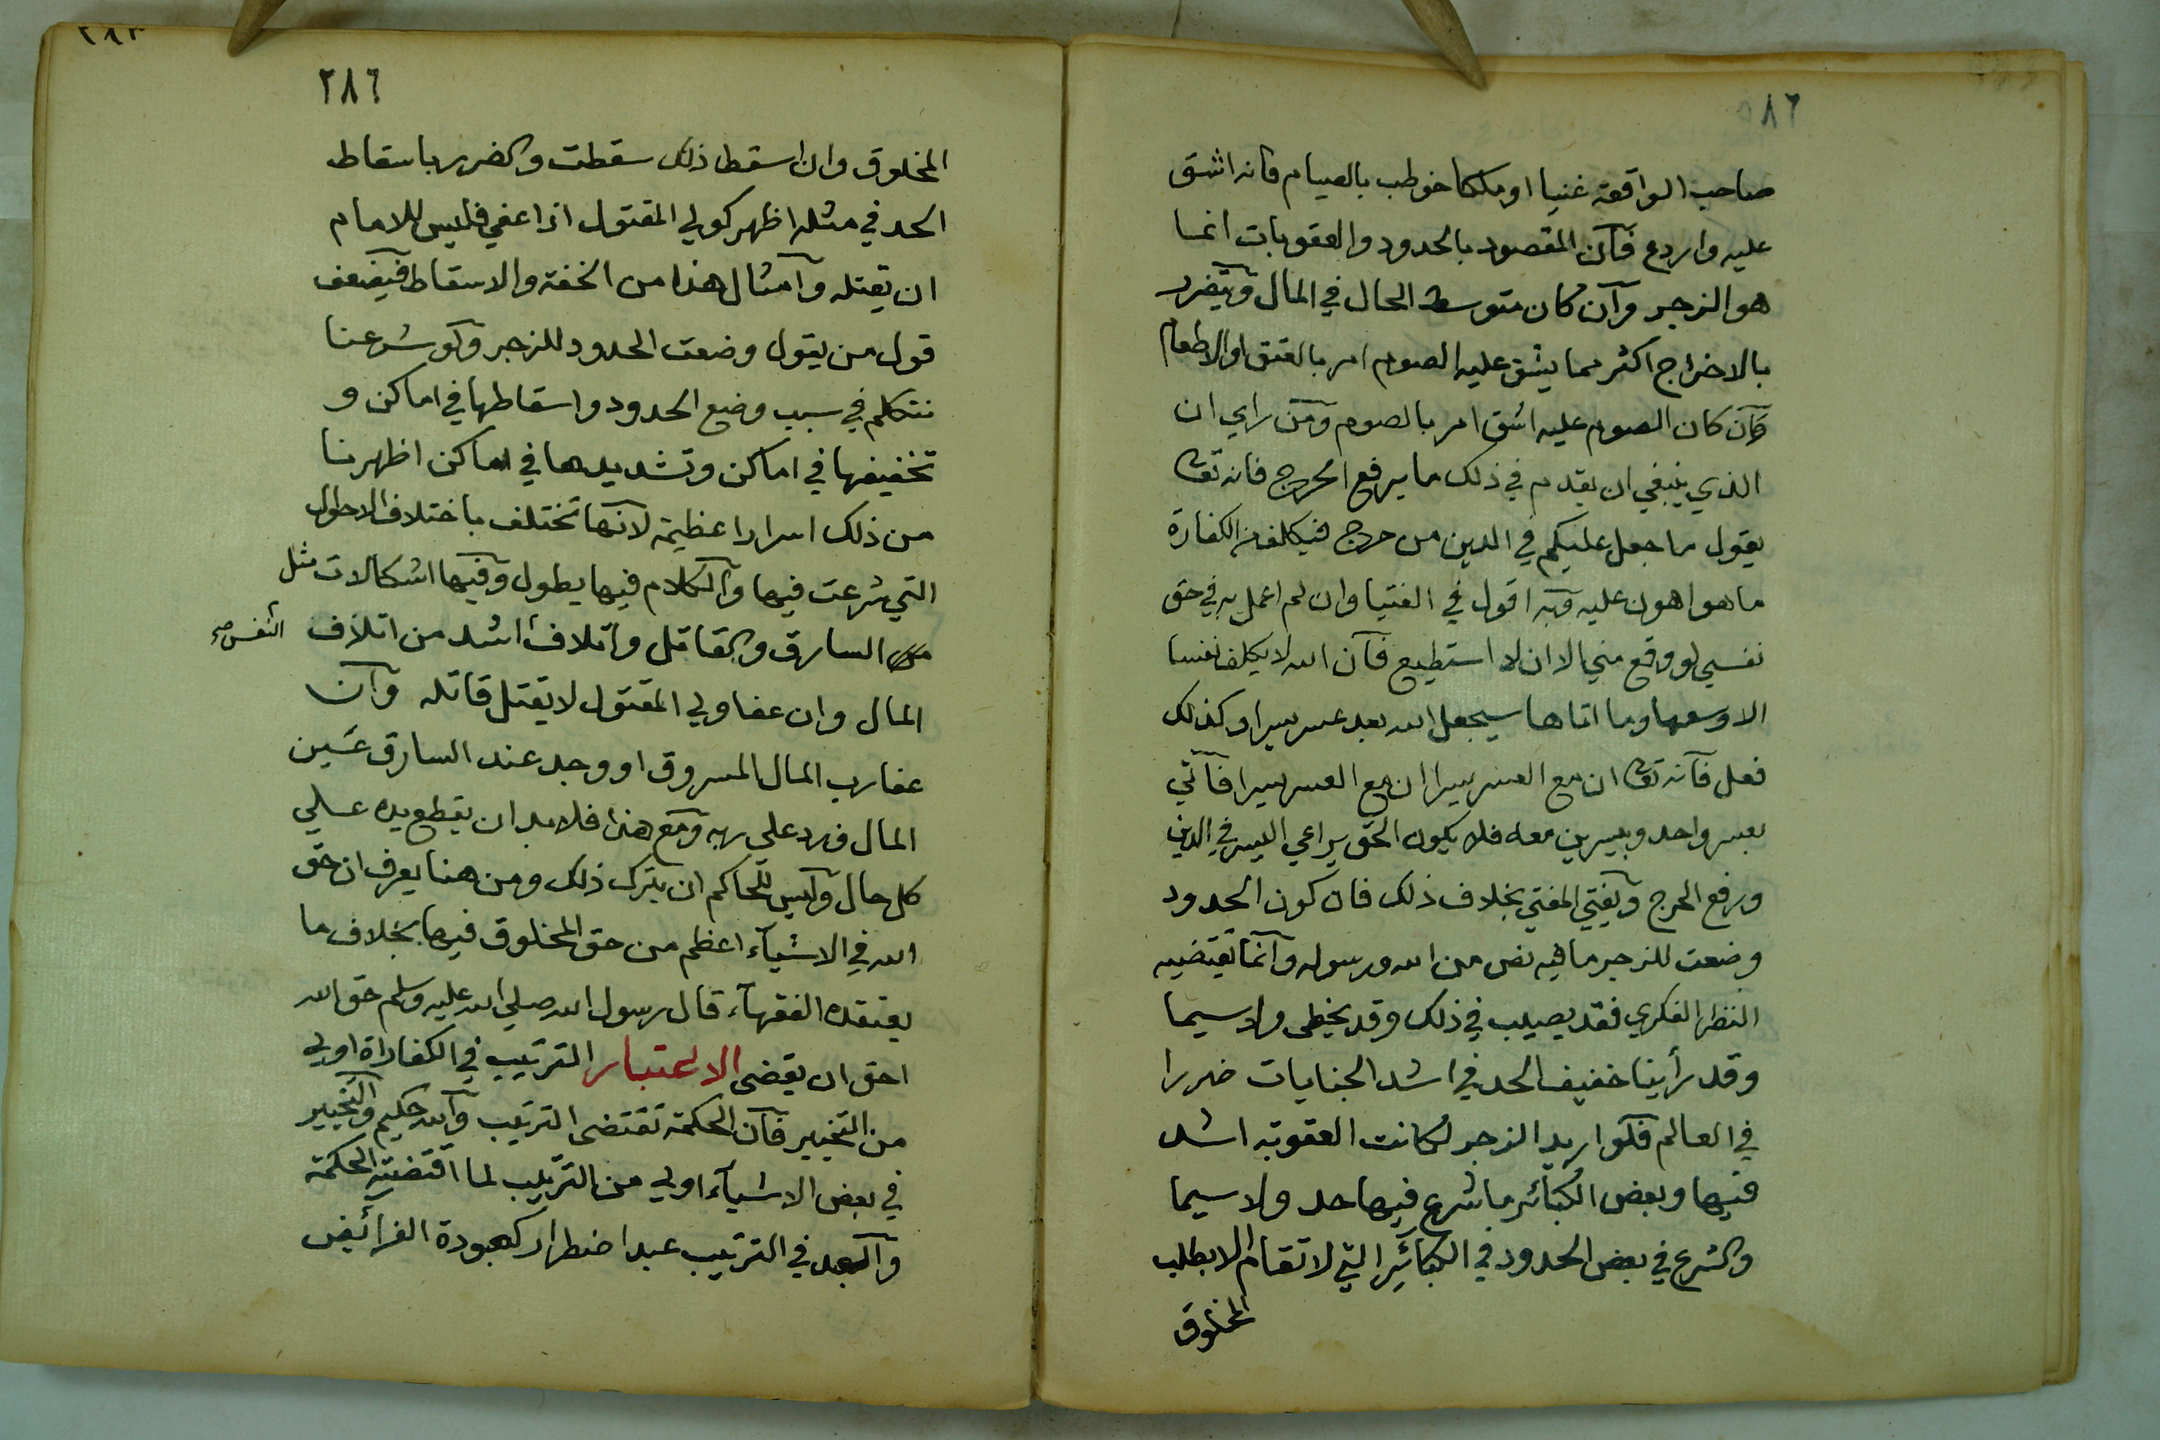 ٨٦
صاحب الواقعة غنيا او ملكا خوطب بالصيام فانه اشق
عليه واردع فآن المقصود بالحدود والعقوبات انما
هو الزجر وآن كان متوسط الحال في المال ويتضرر
بالاخراج اكثر مما يشق عليه الصوم امر بالعتق او الاطعام
وآن كان الصوم عليه اشق امر بالصوم ومن راي ان
الذي ينبغي ان يقدم في ذلك ما يرفع الحرج فانه تعا
يقول ما جعل عليكم في الدين من حرج فيكلف من الكفارة
ما هو اهون عليه وبه اقول في الفتيا وان لم اعمل به في حق
نفسي لو وقع مني الا ان لا استطيع فآن الله لا يكلف نفسا
الا وسعها وما اتاها سيجعل الله بعد عسر يسرا وكذلك
فعل فآنه تعا ان مع العسر يسرا ان مع العسر يسرا فآتي
بعسر واحد وبيسرين معه فلا يكون الحق يراعي اليسر في الدين
ورفع الحرج ويفتي المفتي بخلاف ذلك فان كون الحدود
وضعت للزجر ما فيه نص من الله ورسوله وآنما يقتضيه
النظر الفكري فقد يصيب في ذلك وقد يخطى ولا سيما
وقد رأينا خفيف الحد في اشد الجنايات ضررا
في العالم فلو اريد الزجر لكانت العقوبة اشد
فيها وبعض الكبائر ما شرع فيها حد ولا سيما
والشرع في بعض الحدود في الكبائر التي لا تقام الا بطلب
المخلوق
٢٨٦
المخلوق وان اسقط ذلك سقطت والضرر باسقاط
الحد في مثله اظهر كولي المقتول اذا عفي فليس للامام
ان يقتله وآمثال هذا من الخفة والاسقاط فيضعف
قول من يقول وضعت الحدود للزجر ولو شرعنا
نتكلم في سبب وضع الحدود واسقاطها في اماكن و
تخفيفها في اماكن وتشديدها في اماكن اظهرنا
من ذلك اسرارا عظيمة لانها تختلف باختلاف الاحوال
التي شرعت فيها والكلام فيها يطول وفيها اشكالات مثل
السارق والقاتل واتلاف اشد من اتلاف النفس صح
المال وان عفا ولي المقتول لا يقتل قاتله وآن
عفا رب المال المسروق او وجد عند السارق عين
المال فرد على ربه ومع هذا فلا بد ان يقطع يده علي
كل حال وليس للحاكم ان يترك ذلك ومن هنا يعرف ان حق
الله في الاشيآء اعظم من حق المخلوق فيها بخلاف ما
يعتقده الفقهآء قال رسول الله صلي الله عليه وسلم حق الله
احق ان يقضى الاعتبار الترتيب في الكفاراة اولي
من التخيير فآن الحكمة تقتضى الترتيب والله حكيم والتخيير
في بعض الاشيآء اولي من الترتيب لما اقتضته الحكمة
والعبد في الترتيب عبد اضطرار كعبودة الفرائض